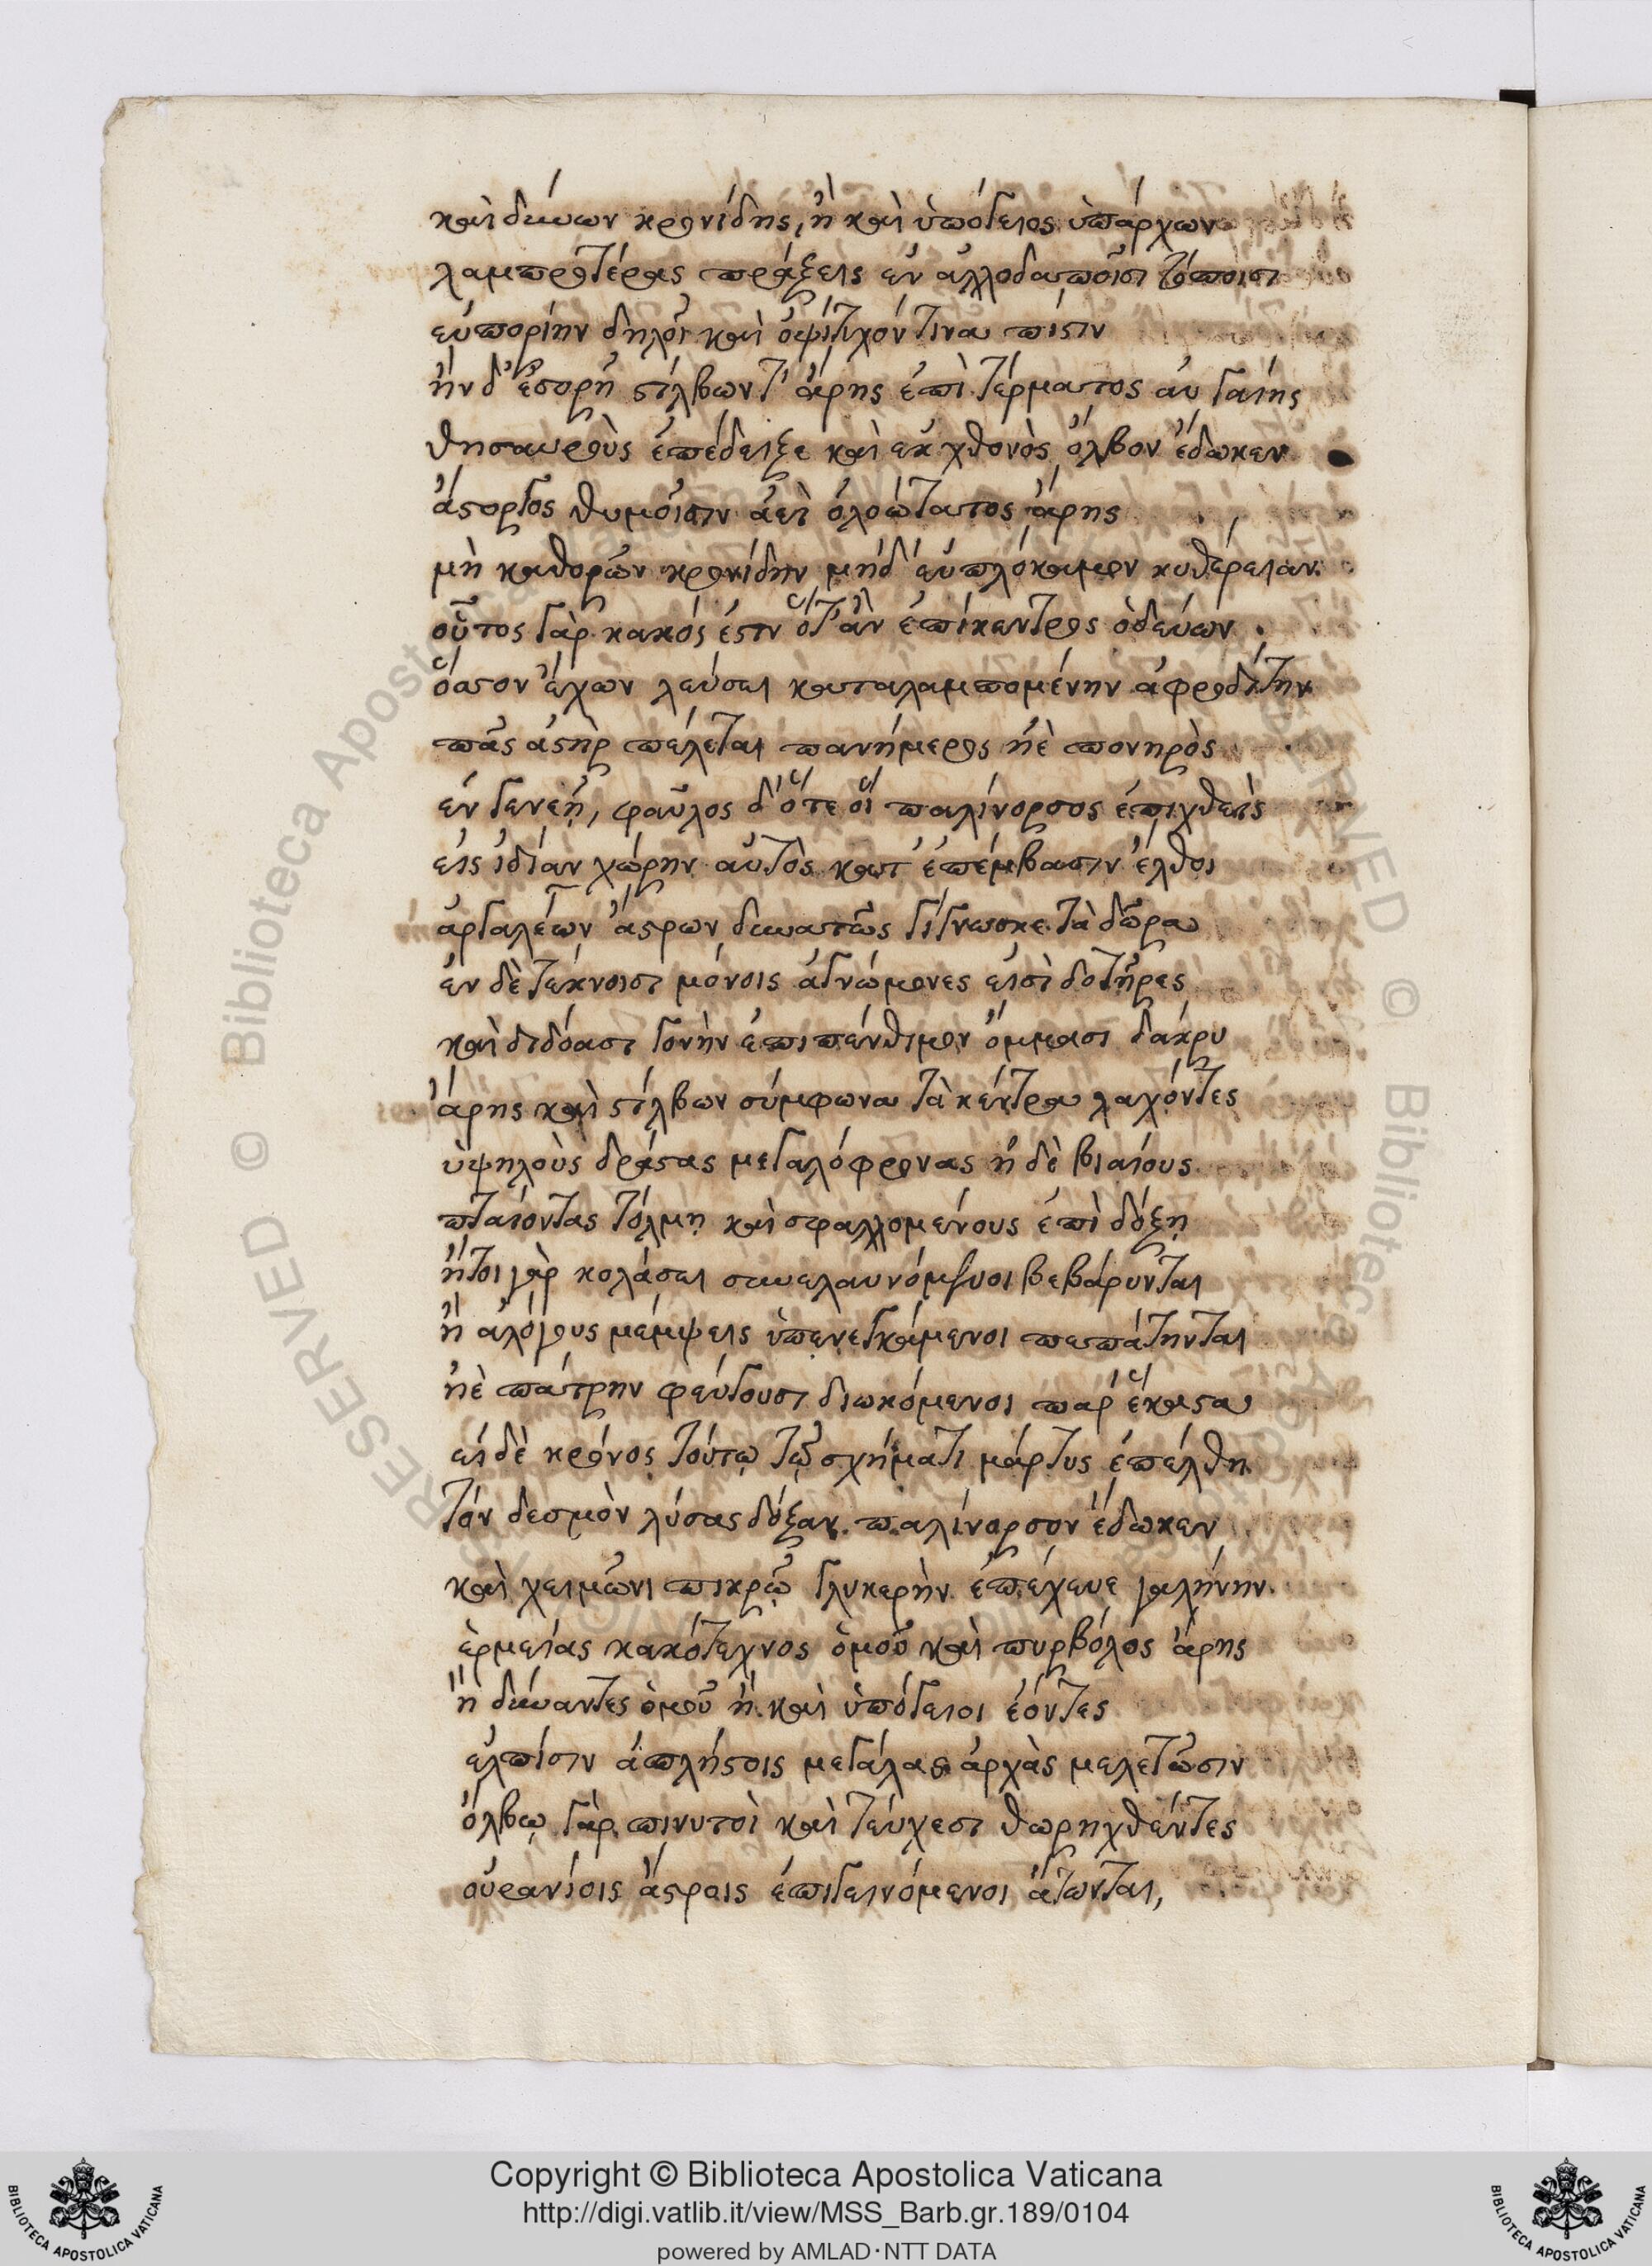 καὶ δύνων κρονίδης, ἢ καὶ ὑπόγειος ὑπάρχων
λαμπροτέρας πράξεις ἐν ἀλλοδαποῖσι τόποισι
εὐπορίην δηλοῖ καὶ ὀψίτυχόν τινα πίστιν
ἢν δ' ἐσορῇ στίλβωντ' ἄρης ἐπὶ τέρματος αὖ γαίης
θησαυροὺς ἐπέδειξε καὶ ἐκ χθονὸς ὄλβον ἔδωκεν
ἄστοργος θυμοῖσιν ἀεὶ ὀλοώτατος ἄρης
μὴ καθορῶν κρονίδην μήδ' εὐπλόκαμον κυθέρειαν.
οὗτος γὰρ κακός ἐστιν ὅτ' ἂν ἐπίκεντρος ὁδεύων.
ὅασον ἔχων λεύσει καταλαμπομένην ἀφροδίτην
πᾶς ἀστὴρ πέλεται πανήμερος ἠὲ πονηρὸς
ἐν γενεῇ, φαῦλος δ' ὅτε οἱ παλίνορσος ἐπιχθεὶς
εἰς ἰδίαν χώρην αὐτὸς κατ' ἐπέμβασιν ἔλθοι
ἀργαλέων ἄστρων δυνατῶς γίγνωσκε τὰ δῶρα
ἐν δὲ τέκνοισι μόνοις ἀγνώμονες εἰσὶ δοτῆρες
καὶ διδόασι γονὴν ἐπιπένθιμον ὄμμασι δάκρυ
ἄρης καὶ στίλβων σύμφωνα τὰ κέντρα λαχόντες
ὑψηλοὺς δράστας μεγαλόφρονας ἠδὲ βιαίους
πταίοντας τόλμῃ καὶ σφαλλομένους ἐπὶ δόξῃ
ἤτοι γὰρ κολάσει συνελαυνόμενοι βεβάρυνται
ἢ ἀλόγους μέμψεις ὑπενεγκάμενοι πεπάτηνται
ἠὲ πάτρην φεύγουσι διωκόμενοι παρ' ἕκαστα
εἰ δὲ κρόνος τούτῳ τῷ σχήματι μάρτυς ἐπέλθῃ
τὸν δεσμὸν λύσας δόξαν παλίνορσον ἔδωκεν
καὶ χειμῶνι πικρῷ γλυκερὴν ἐπέχευε γαλήνην.
ἑρμείας κακότεχνος ὁμοῦ καὶ πυρβόλος ἄρης
ἢ δύναντες ὁμοῦ ἢ καὶ ὑπόγειοι ἐόντες
ἐλπίσιν ἀπλήστοις μεγάλας ἀρχὰς μελετῶσιν
ὄλβῳ γὰρ πινυτοὶ καὶ τεύχεσι θωρηχθέντες
οὐρανίοις ἄστροις ἐπιγεινόμενοι ἄγωνται,
Copyright © Biblioteca Apostolica Vaticana
http://digi.vatlib.it/view/MSS_Barb.gr.189/0104
powered by AMLAD·NTT DATA